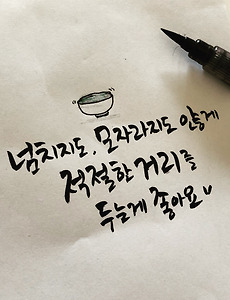 넘치지도, 모자라지도 안흥게
적절한 거리를
두는게 좋아요